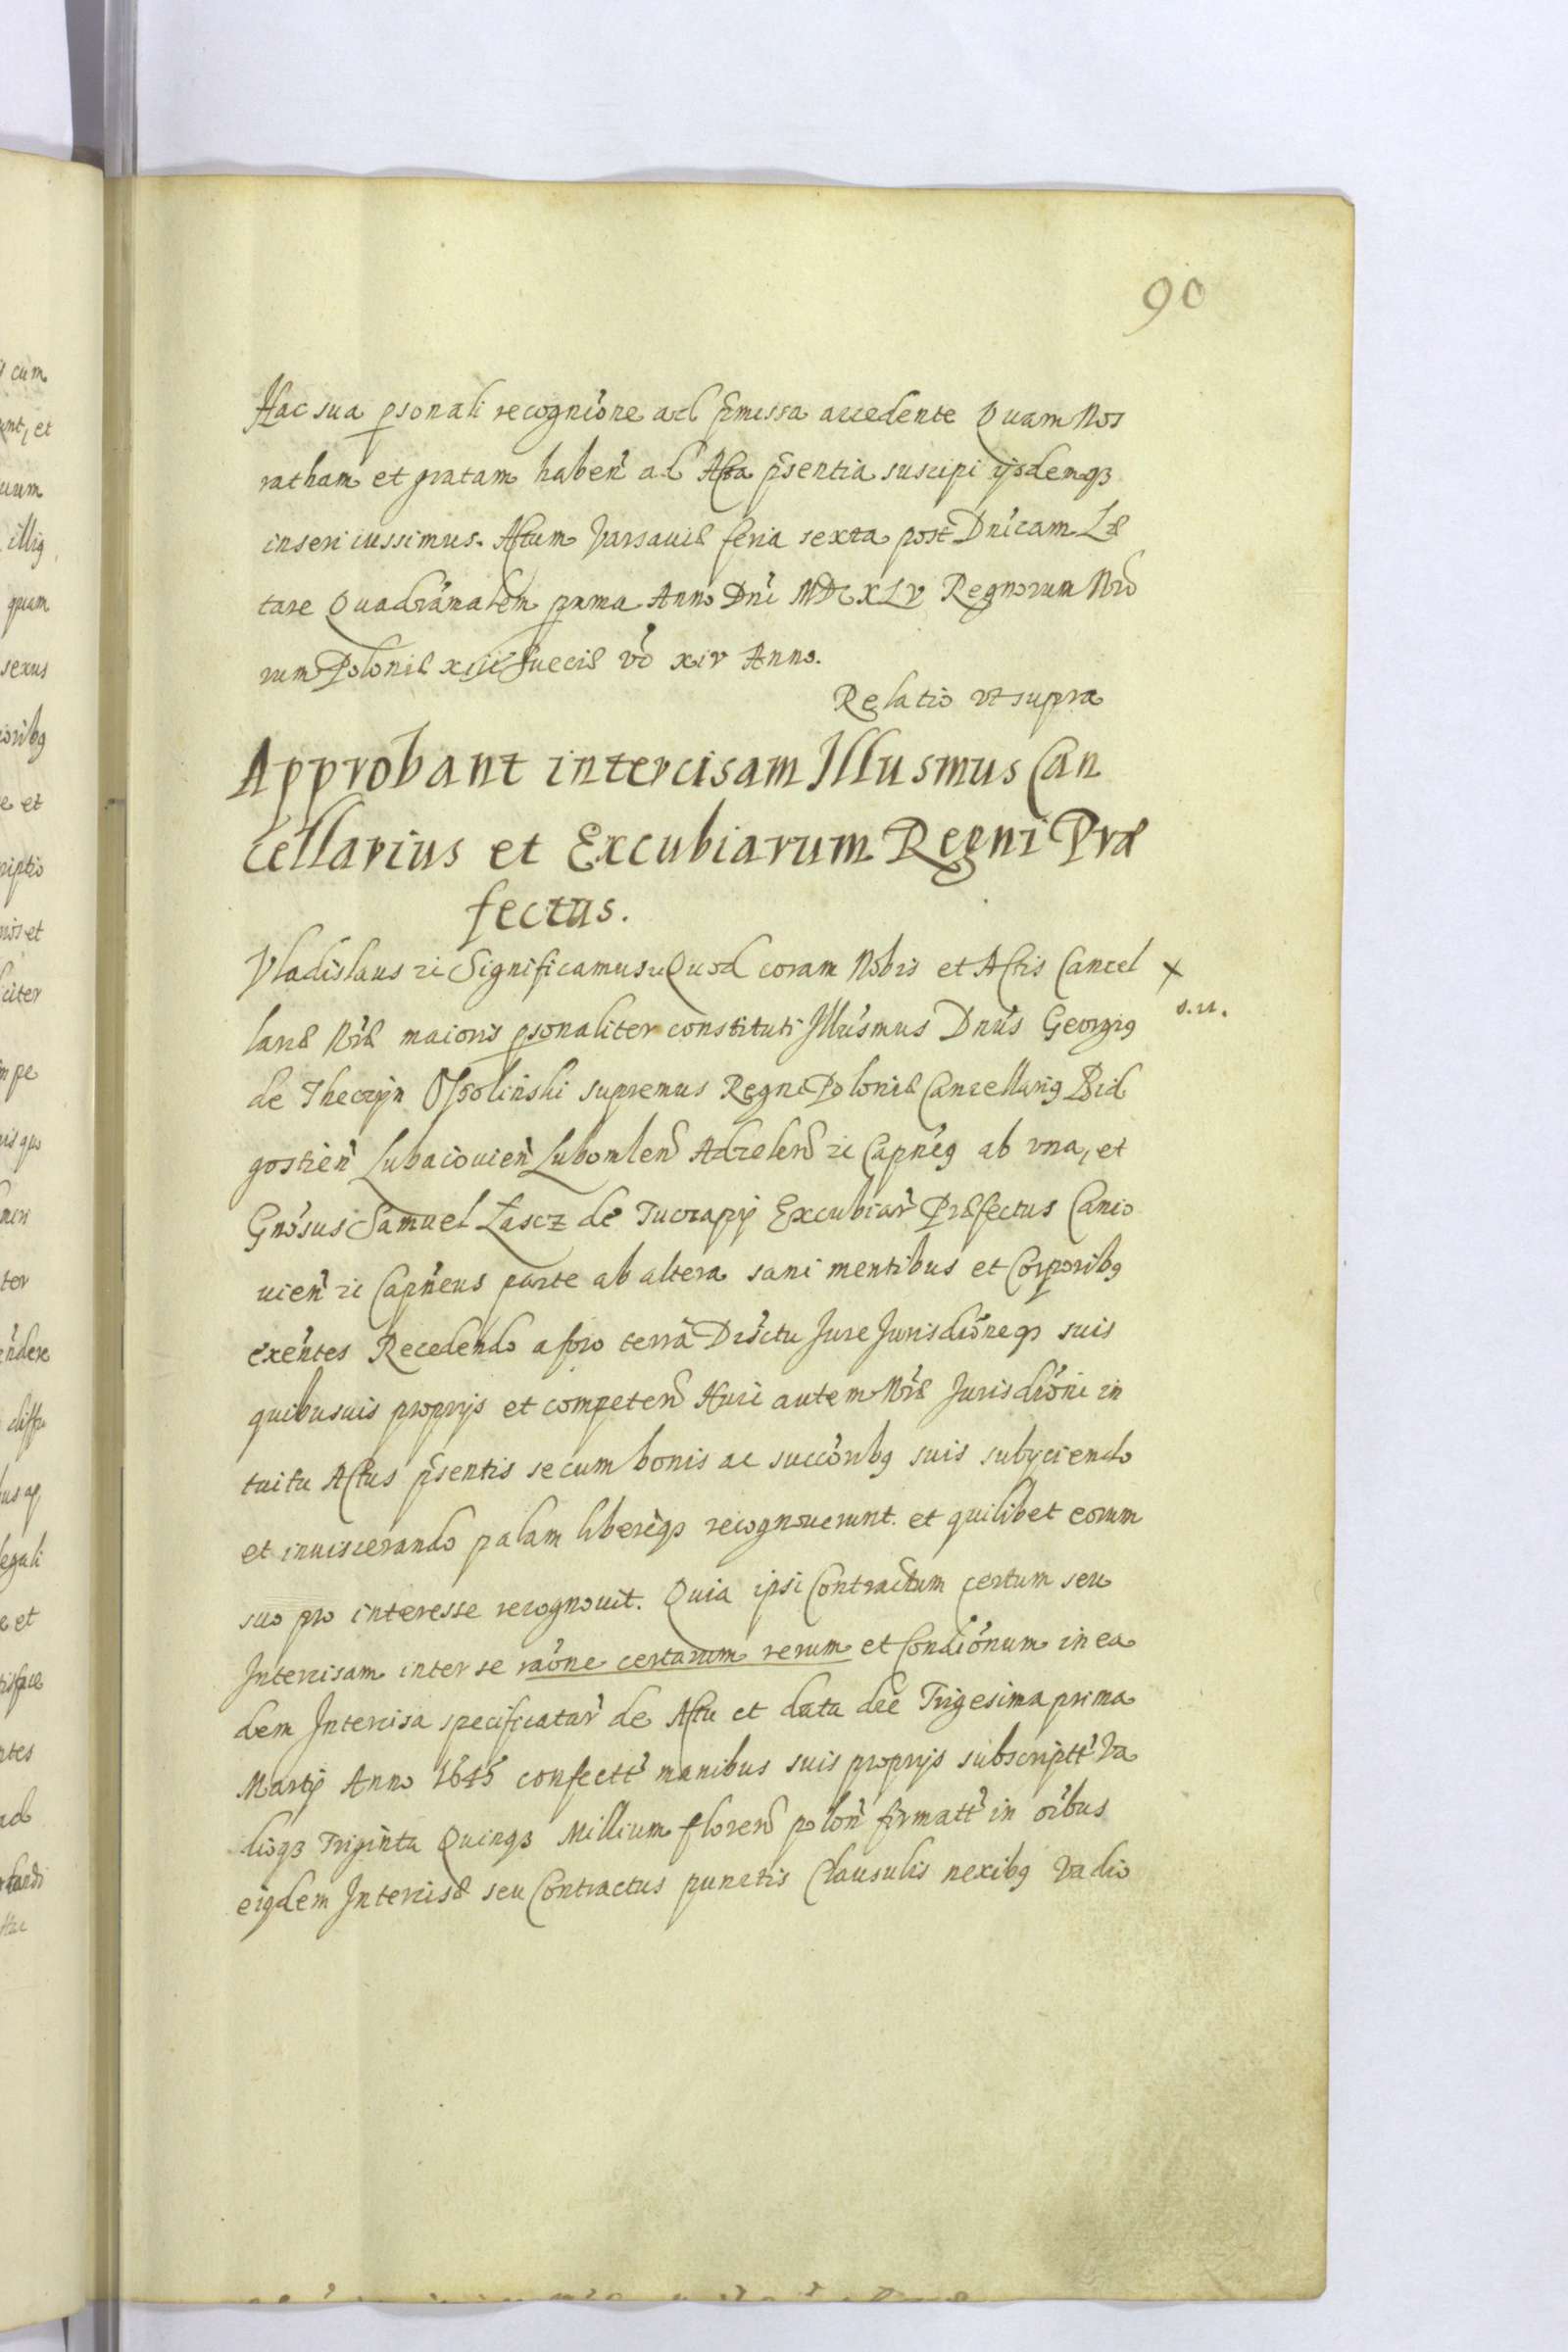 90
Hac sua psonali recognióne ad pmissa accedente Quam Nos
ratham et gratam haben̉ ad Acta p̃sentia suscipi ijsdemqȝ
inseri iussimus. Actum Varsauiæ feria sexta post Dnicam Læ
tare Quadránalem prima Anno Dni MDCXLV Regnorum Nrõ
rum Poloniæ xiii Sueciæ vo xiv Anno.
Relatio vt supra
Approbant intercisam Illusmus Can
cellarius et Excubiarum Regni Præ
fectus.
Vladislaus zc Significamus zc Quod coram Nobis et Actis Cancel
lariæ Nræ maioris psonaliter constituti Illusmus Dnus Georgiꝰ
de Theczyn Ossolinski supremus Regni Poloniæ Cancellariꝰ Bid
gostień Lubaczouień Lubomlen Adzelen zc Capneꝰ ab vna, et
Gnosus Samuel Łascz de Tuczapy Excubiar Præfectus Canio
uień zc Capneus parte ab altera sani mentibus et Corporibꝰ
exéntes Recedendo a foro terrã Drictu Jure Jurisdióneqȝ suis
quibusuis proprijs et competen Huic autem Nræ Jurisdióni in
tuitu Actus p̃sentis se cum bonis ac succóribꝰ suis subijciendo
et inuiscerando palam libereqȝ recognouerunt. et quilibet eorum
suo pro interesse recognouit. Quia ipsi Contractum certum seu
Intercisam inter se raóne certarum rerum et Condiónum in ea
dem Intercisa specificatar̉ de Actu et data die Trigesima prima
Martij Anno 1645 confectt manibus suis proprijs subscriptt Va
dioqȝ Triginta Quinqȝ Millium floren polon̉ firmatt in oíbus
eiꝰdem Intercisæ seu Contractus punctis Clausulis nexibꝰ Vadio
x
s.n.